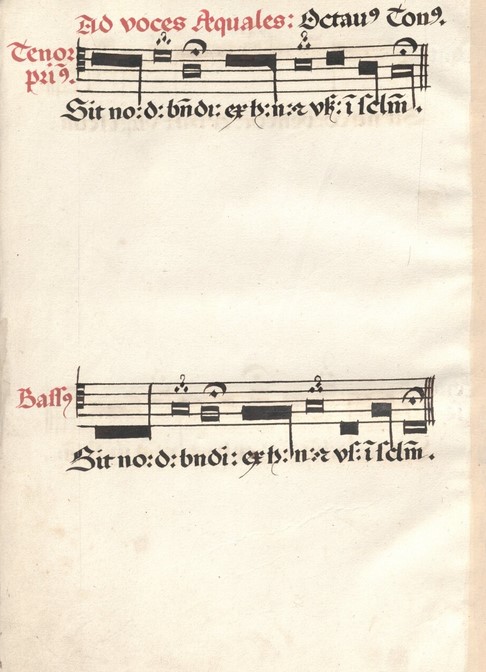 Ad voces Æquales: Octauꝰ Tonꝰ.
Tenor
priꝰ.
Sit no: d: bn̄di: ex h: n: ⁊ vſ: ī ſclm̄.
Baſſꝰ
Sit no: d: bndi: ex h: n: ⁊ vſ: ī ſclm̄.